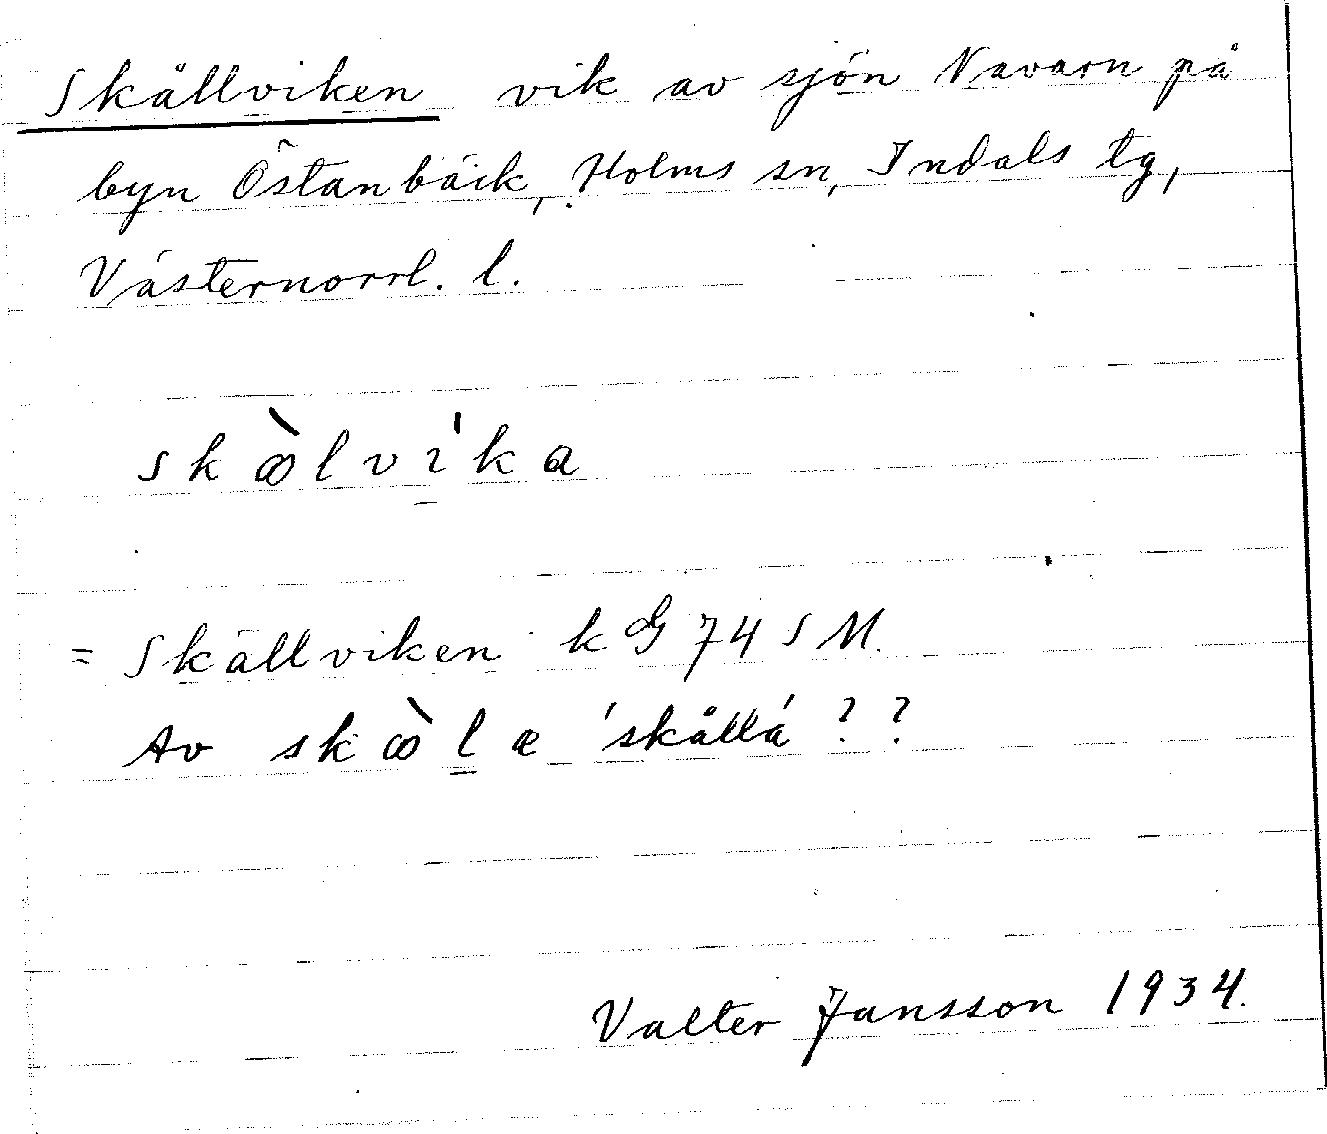 Skållviken vik av sjön Navarn på
byn Östanbäck, Holms sn, Indals tg,
Västernorrl. l.
skꝏ̀lvı̍ka
= Skållviken k G 74 SM.
Av skꝏ̀læ 'skålla' ??
Valter Jansson 1934.